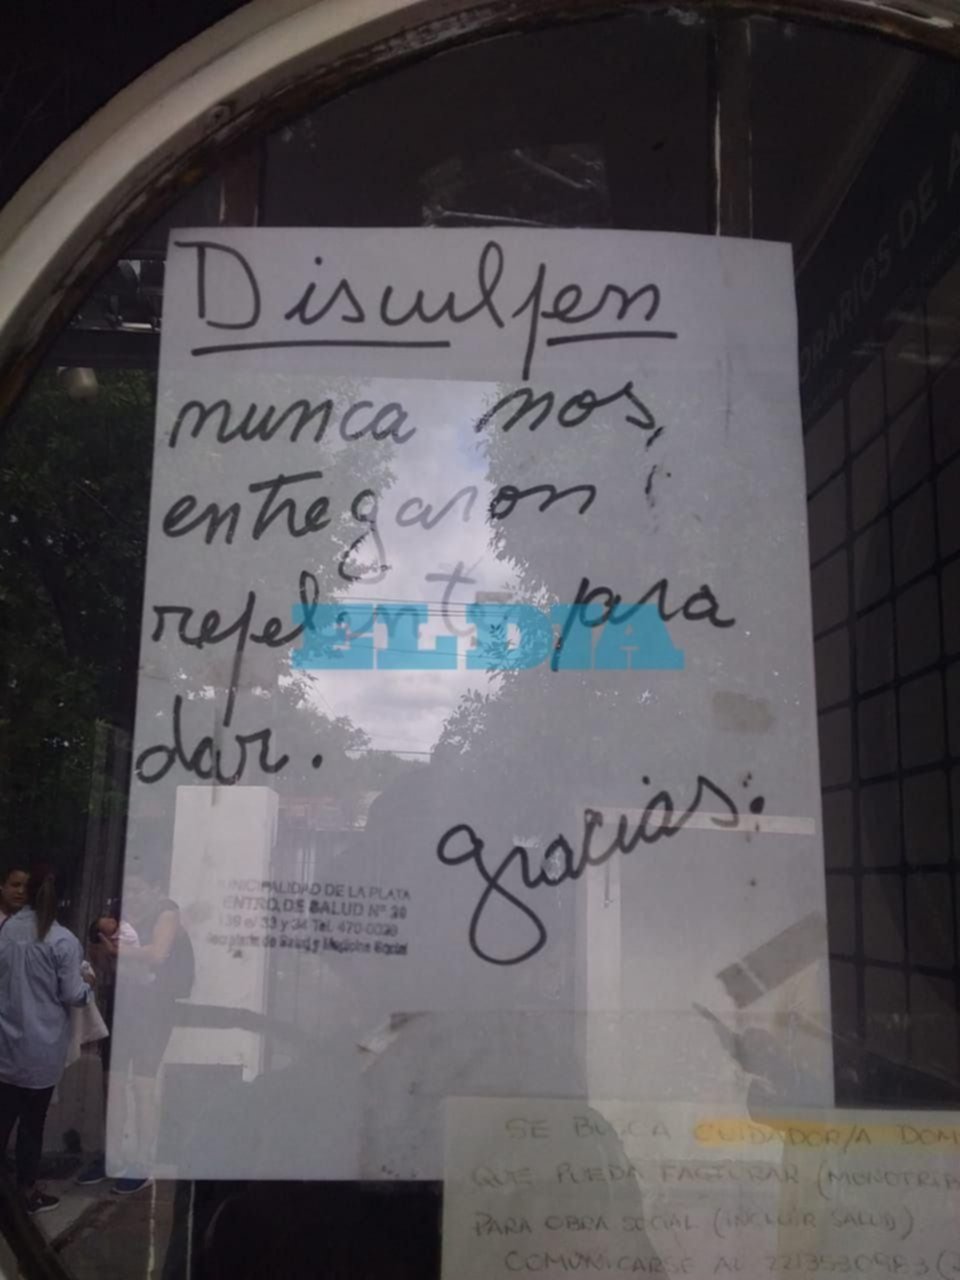 Disculpen
nunca nos
entregaron
repelente para
dar.
gracias.
EL DIA
MUNICIPALIDAD DE LA PLATA
CENTRO DE SALUD Nº
139 e/ 33 y 34 Tel. 470-0029
Secretaría de Salud y Medicina Social
HORARIOS DE
SE BUSCA CUIDADOR/A DOM
QUE PUEDA FACTURAR (MONOTRIB
PARA OBRA SOCIAL (INCLUIR SALUD)
COMUNICARSE AL 2213530983